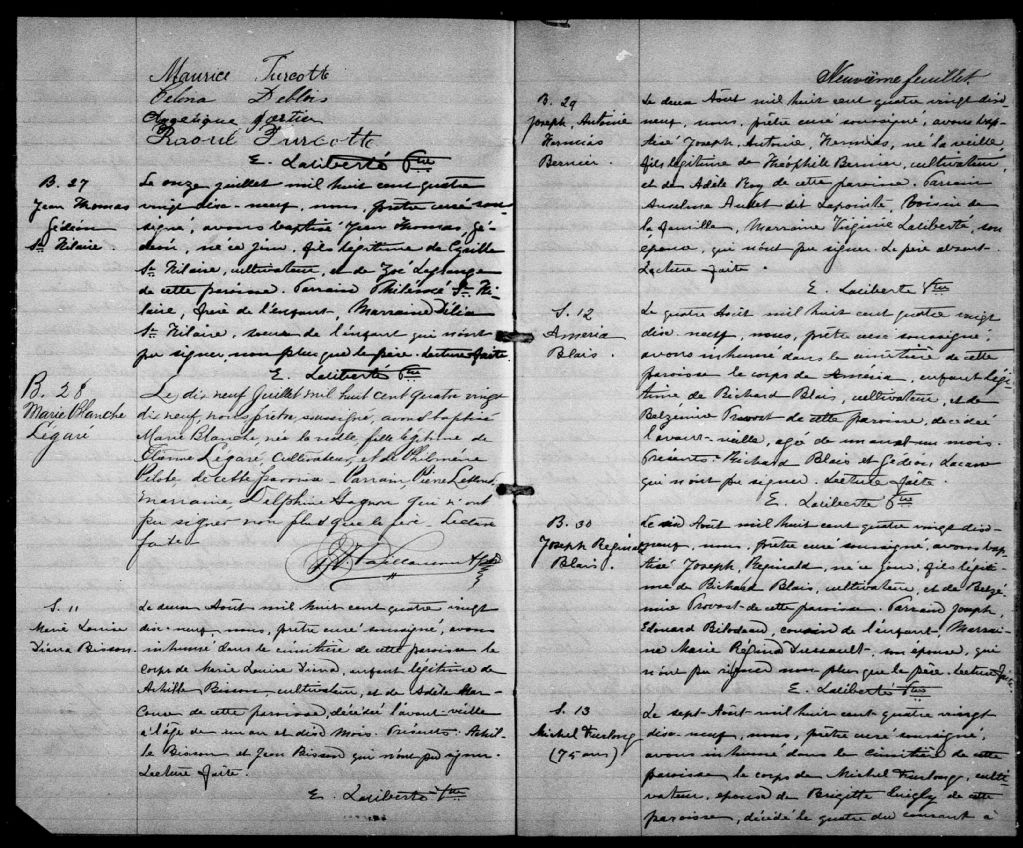 Maurice Turcotte
Celina Deblois
Angélique Fortier
Raoul Turcotte
E. Laliberté Ptre
B. 27
Jean Thomas
Gédéon
St. Hilaire.
Le onze juillet mil huit cent quatre
vingt dix-neuf, nous, prêtre curé sous-
signé, avons baptisé Jean Thomas, Gé-
déon, né ce jour, fils légitime de Cyrille
St. Hilaire, cultivateur, et de Zoé Lagrange
de cette paroisse. Parrain Philémé St. Hi-
laire, frère de l'enfant, Marraine Délia
St. Hilaire, soeur de l'enfant qui n'ont
pu signer, non plus que le père. Lecture faite.
E. Laliberté Ptre
B. 28
Marie Blanche
Légaré
Le dix neuf Juillet mil huit cent quatre vingt
dix neuf nous prêtre, soussigné, avons baptisé
Marie Blanche, née la veille, fille légitime de
Etienne Légaré, cultivateur, et de Philomène
Pilote, de cette paroisse - Parrain, Pierre
marraine, Delphine Gagnon, qui n'ont
pu signer non plus que le père. Lecture
faite
S. 11
Marie Louise
Diana Bisson.
Le deux Août mil huit cent quatre vingt
dix-neuf, nous, prêtre curé soussigné, avons
inhumé dans le cimetière de cette paroisse le
corps de Marie Louise Diana, enfant légitime de
Achille Bisson, cultivateur, et de Adèle Mar-
coux de cette paroisse, décédée l'avant-veille
à l'âge de un an et dix mois. Présents Achil-
le Bisson et Jean Bisson qui n'ont pu signer.
Lecture faite.
E. Laliberté Ptre
Neuvième feuillet
B. 29
Joseph, Antoine
Herménias
Bernier.
Le deux Août mil huit cent quatre vingt dix-
neuf, nous, prêtre curé soussigné, avons bap-
tisé Joseph, Antoine, né la veille,
fils légitime de Théophile Bernier, cultivateur
et de Adèle Roy de cette paroisse. Parrain
Anselme Audet dit Lapointe, voisin de
la famille, Marraine Virginie Laliberté, son
épouse, qui n'ont pu signer. Le père absent.
Lecture faite.
E. Laliberté Ptre
S. 12
Améria
Blais
Le quatre Août mil huit cent quatre vingt
dix neuf, nous, prêtre curé soussigné,
avons inhumé dans le cimetière de cette
paroisse le corps de Améria, enfant légi-
time de Richard Blais, cultivateur, et de
Belzémire Provost de cette paroisse, décédée
l'avant-veille, agée de un an et un mois.
Présents Richard Blais et Gédéon
qui n'ont pu signer. Lecture faite.
E. Laliberté Ptre
B. 30
Joseph Reginald
Blais.
Le six Août mil huit cent quatre vingt dix-
neuf, nous, prêtre curé soussigné, avons bap-
tisé Joseph, Reginald, né ce jour, fils légiti-
me de Richard Blais, cultivateur, et de Belzé-
mire Provost de cette paroisse. Parrain Joseph,
Edouard Bilodeau, cousin de l'enfant, Marrai-
ne Marie Régina Dussault, son épouse, qui
n'ont pu signer non plus que le père. Lecture faite.
E. Laliberté Ptre
S. 13
Michel Furlong
(75 ans)
Le sept Août mil huit cent quatre vingt
dix-neuf, nous, prêtre curé soussigné,
avons inhumé dans le cimetière de cette
paroisse le corps de Michel Furlong, culti-
vateur, époux de Brigitte Quigly de cette
paroisse, décédé le quatre du courant à